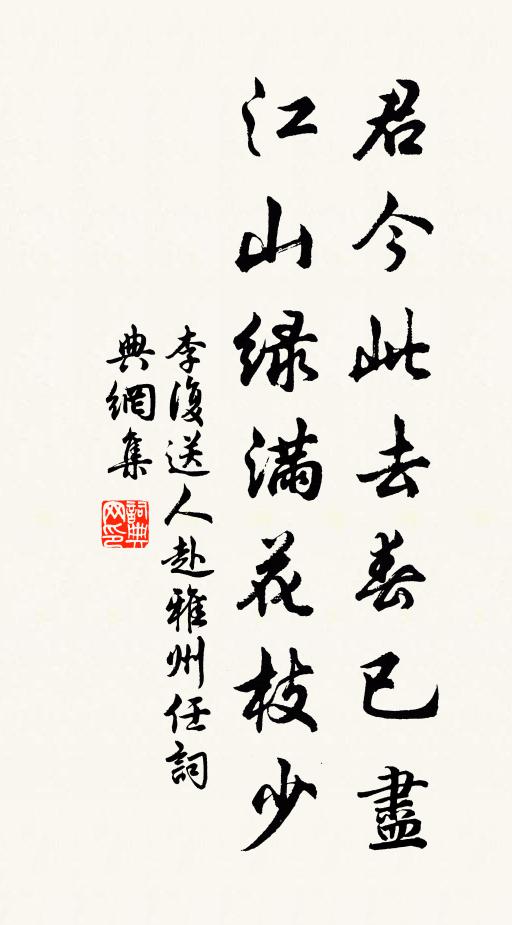 君今此去春已盡
江山緑滿花枝少
李復送人赴雅州任詞
典網集
詞典
网印